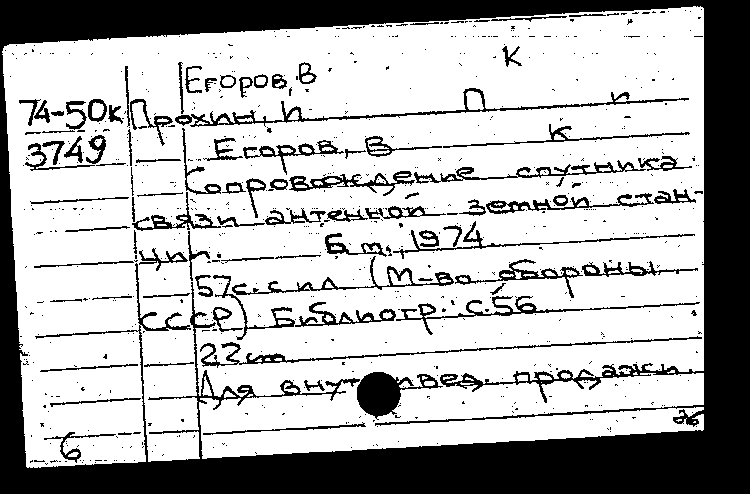 Егоров, В К
74-50к Прохин, И П п
3749 Егоров, В К
Сопровождение спутника
связи антенной земной стан-
ции. Б.м., 1974.
57с. с ил (М-во обороны
СССР). Библиогр.: с.56
22 см
Для внут продажи.
6